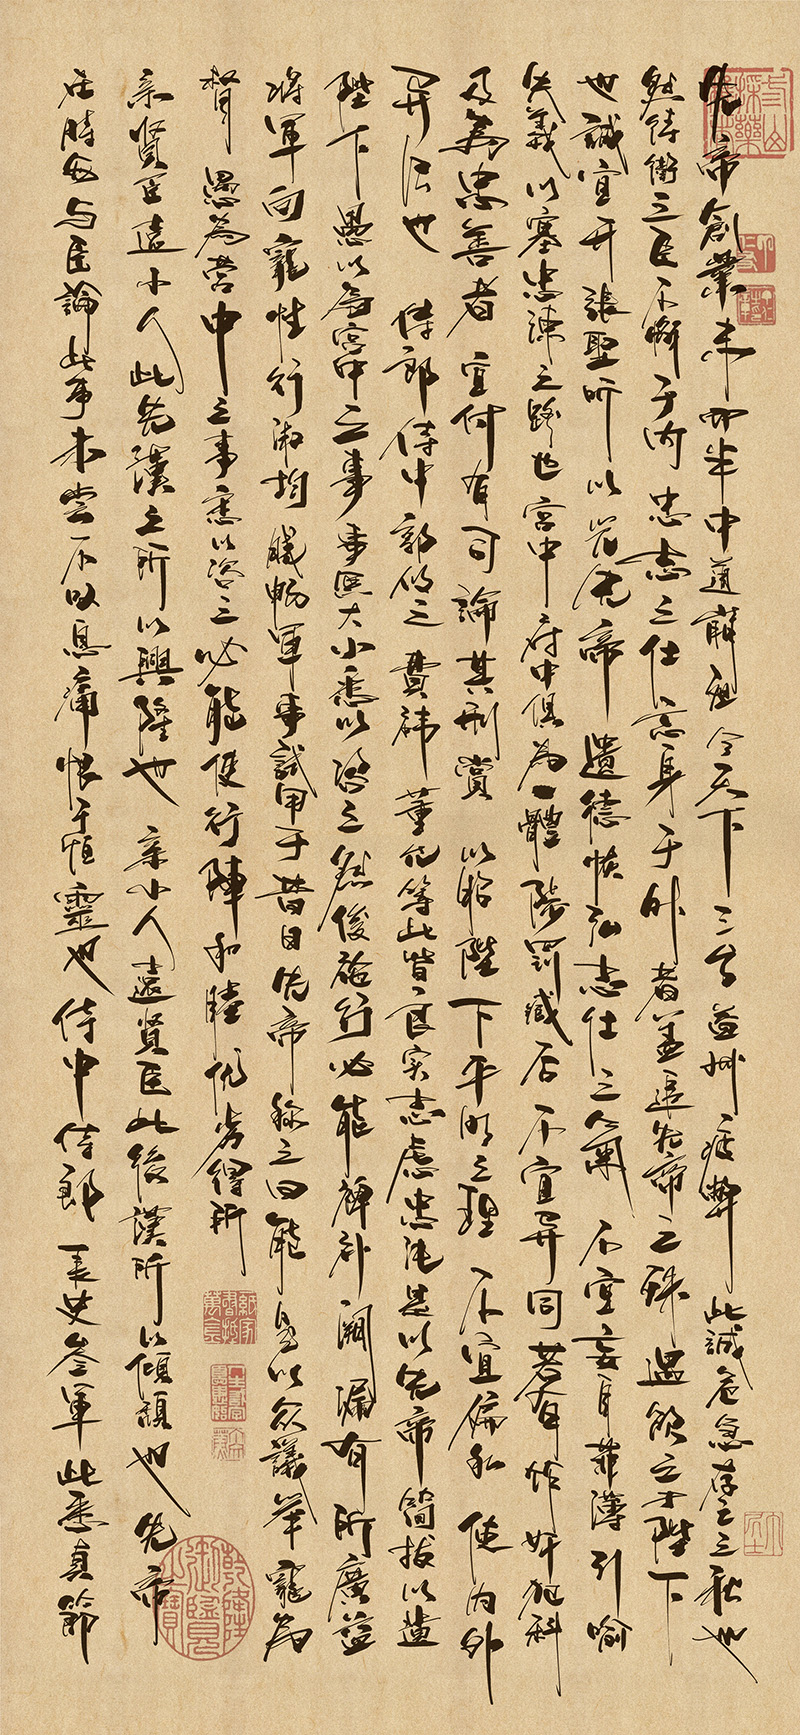 先帝創業未即半中道崩殂今天下三分益州疲弊此誠危急存亡之秋也
然侍衛之臣不懈于內忠志之仕忘身于外者蓋追先帝之殊遇欲之于陛下
也誠宜开張聖听以光先帝遺德恢弘志仕之氣不宜妄自菲薄引喻
失義以塞忠諫之路也宮中府中俱為一體陟罰臧否不宜异同若有作奸犯科
及為忠善者宜付有司論其刑賞以昭陛下平明之理不宜偏私使內外
异法也侍郎侍中郭攸之費禕董允等此皆良实志慮忠純是以先帝簡拔以遺
陛下愚以為宮中之事事無大小悉以咨之然後施行必能裨补闕漏有所廣益
將軍向寵性行淑均曉暢軍事試用于昔日先帝称之曰能是以众議举寵為
督愚為營中之事悉以咨之必能使行陣和睦优劣得所
亲賢臣遠小人此先漢之所以興隆也亲小人遠賢臣此後漢所以傾頹也先帝
在時每与臣論此事未尝不叹息痛恨于恒靈也侍中侍郎長史參軍此悉貞節
乾隆御覽之寶